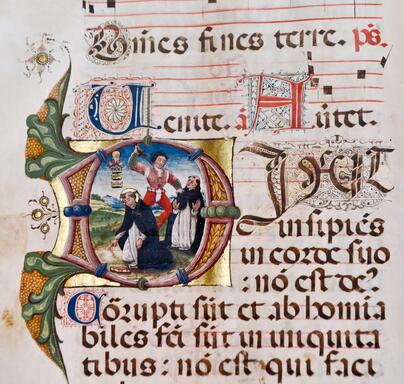 Om̄es fines terre. ps.
Uenite. a Au̾tet.
DIXIT
insipiēs
in corde suo
: nō est deꝰ
Corrupti sūt et abhomia
biles fc̄i sūt in iniquita
tibus : nō est qui faci